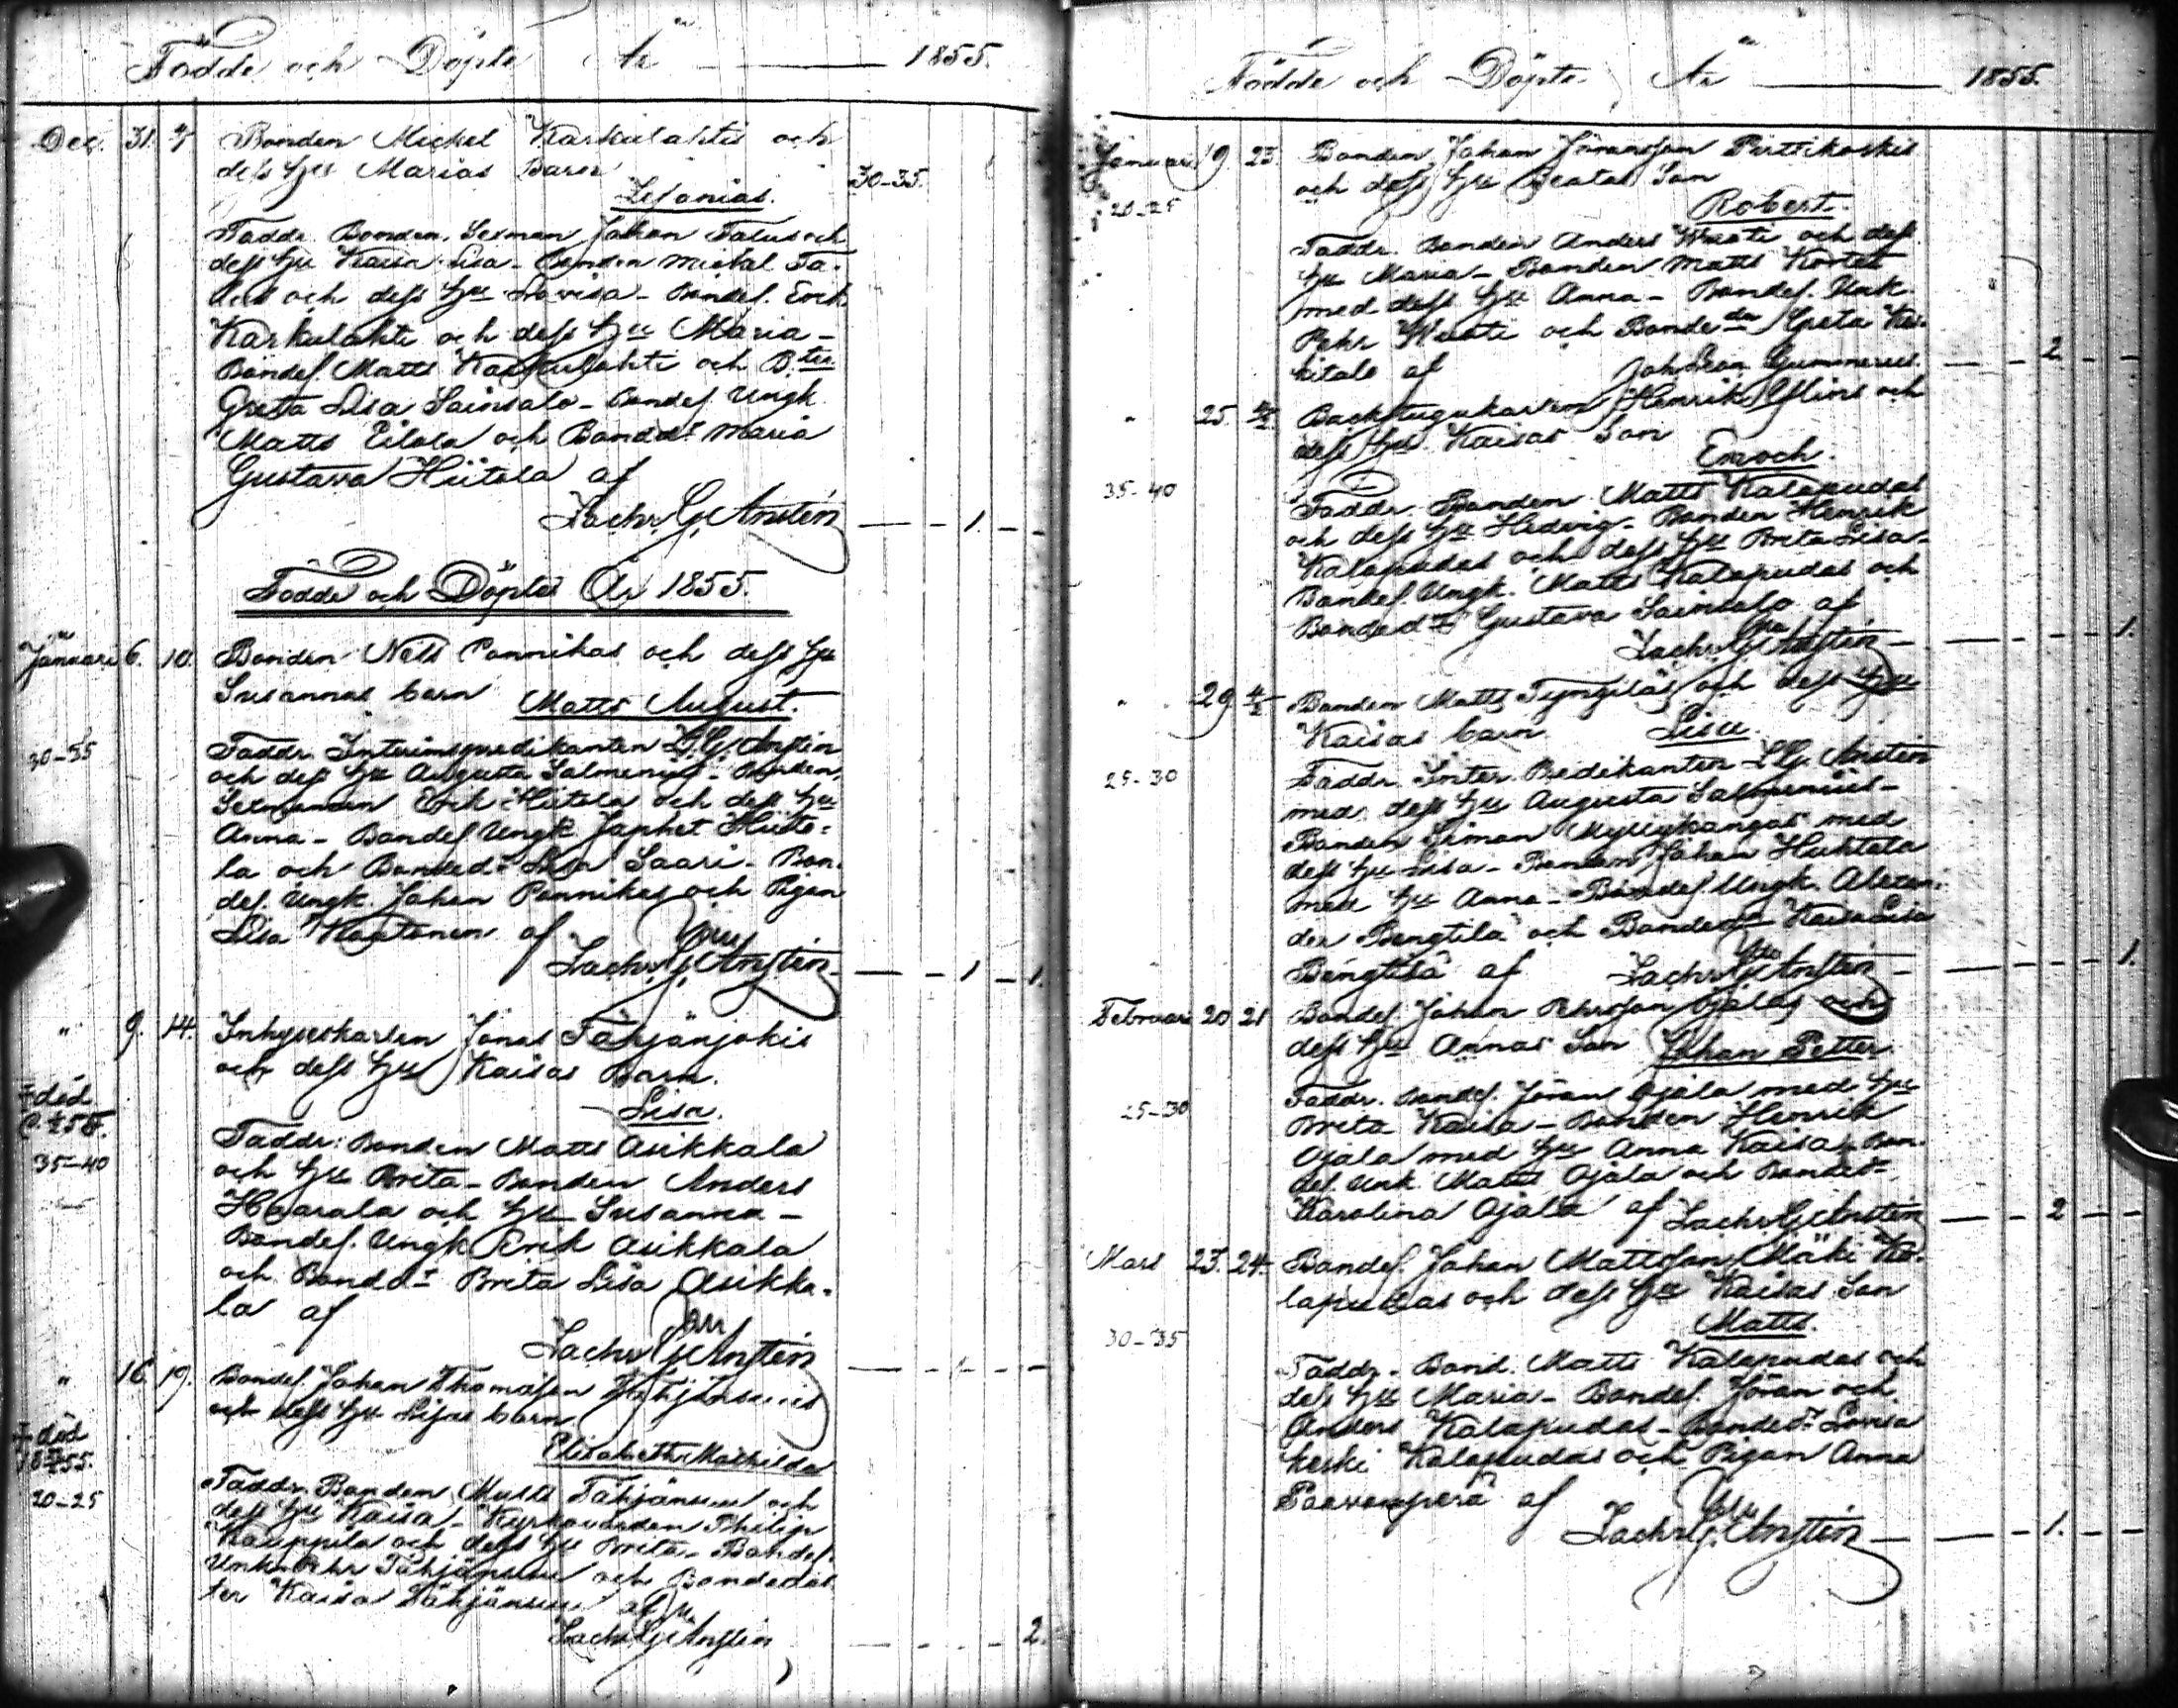 Födde och Döpte År 1855.
Dec. 31. Bonden Mickel Karkulahtis och
dess hu Marias Barn 30-35.
Zefanias.
Faddr. Bonden, Sexman Johan Talus och
dess hu Kaisa Lisa - Bonden Mickel Ta-
lus och dess hu Lovisa - Bondes. Erik
Karkulahti och dess hu Maria -
Bondes. Matts Karkulahti och B.ter
Greta Lisa Sainsalo - Bondes Ungk.
Matts Eilola och Bondedr Maria
Gustava Hiitola af
Zachr. G. Anstén 1.
Födde och Döpte År 1855.
Januari 6. 10. Bonden Nils Pannikas och dess hu
Susannas barn Matts August.
30-35 Faddr. Interimspredikanten Z. G. Anstén
och dess hu Augusta Salmenius - Bonden,
Sexmannen Erik Hiitola och dess hu
Anna - Bondes Ungk. Japhet Hiito-
la och Bondedr Lisa Saari - Bon-
des. Ungk. Johan Pannikas och Pigan
Lisa Kaartonen af
Zachr. G. Anstén 1 1.
" 9. 14. Inhyseskarlen Jonas Tähjänjokis
och dess hu Kaisas Barn.
död Lisa.
35-40 Faddr: Bonden Matts Asikkala
och hu Brita - Bonden Anders
Haarala och hu Susanna -
Bondes. Ungk Erik Asikkala
och Bondedr Brita Lisa Asikka-
la af
Zachr. G. Anstén 1
" 16. 19. Bondes Johan Thomasson
och dess hu Lisas barn
död Elisabeth Mathilda
20-25 Faddr. Bonden Matts och
dess hu Kaisa - Kyrkovärden Philip
Kauppila och dess hu Brita - Bondes.
Unk. Pehr och Bondedot-
ter Kaisa af
Zachr. G. Anstén 2.
Födde och Döpte År 1855.
Januari 19. 23. Bonden Johan Jöransson Pirttikoskis
och dess hu Beatas Son
20-25 Robert.
Faddr. Bonden Anders och dess
hu Maria - Bonden Matts
med dess hu Anna - Bondes. Unk.
Pehr och Bondedr Greta
af Joh Leon. Gummerus. 2
" 25. Backstugukarlen Henrik och
dess hu Kaisas Son
Enoch.
35-40 Faddr. Bonden Matts Kalapudas
och dess hu Hedvig - Bonden Henrik
Kalapudas och dess hu Brita Lisa -
Bondes. Ungk. Matts Kalapudas och
Bondedr Gustava Sainsalo af
Zachr. G. Anstén 1.
" 29. 4/2 Bonden Matts och dess hu
Kaisas barn Lisa.
25-30 Faddr. Inter. Predikanten Z G. Anstén
med dess hu Augusta Salmenius -
Bonden Simon Myllykangas med
dess hu Lisa - Bonden Johan Huhtala
med hu Anna - Bondes Ungk. Alexan-
der Bengtilä och Bondedr Kaisa Lisa
Bengtilä af Zachr. G. Anstén 1.
Februari 20 21 Bondes. Johan Pehrsson Ojalas och
dess hu Annas Son Johan Petter.
25-30 Faddr. Bondes. Jöran Ojala med hu
Brita Kaisa - Bonden Henrik
Ojala med hu Anna Kaisa - Bon-
des. Unk. Matts Ojala och Bondedr
Karolina Ojala af Zachr. G. Anstén 2
Mars 23. 24. Bondes. Johan Mattsson Mäki Ka-
lapudas och dess hu Kaisas Son
30-35 Matts.
Faddr. Bond. Matts Kalapudas och
dess hu Maria - Bondes. Jöran och
Anders Kalapudas - Bondedr Lovisa
Keski Kalapudas och Pigan Anna
Paavonperä af
Zachr. G. Anstén 1.